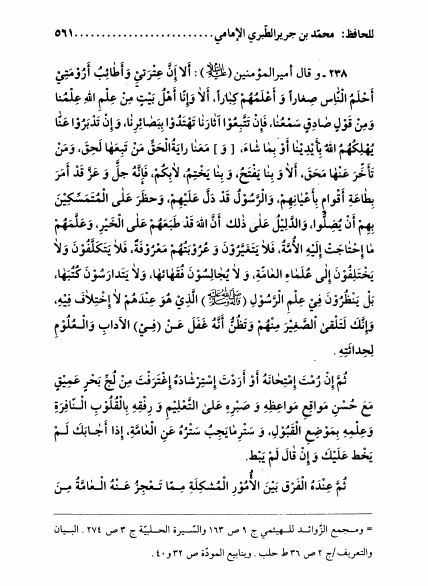 للحافظ: محمّد بن جرير الطّبري الإمامي ........................... ٥٦١
٢٣٨ ـ و قال أمير المؤمنين (عليه السلام): أَلا إِنَّ عِتْرَتي وَ أَطائِبُ أَرُومَتِيْ
أَحْلَمُ النّاس صِغاراً وَ أَعْلَمُهُمْ كِبَاراً، أَلا وَإِنّا أَهْلُ بَيْتٍ مِنْ عِلْمِ اللهِ عِلْمُنا
وَمِنْ قَوْلِ صادِقٍ سَمْعُنا، فَإِنْ تَتَّبِعُوا آثارَنا تَهْتَدُوا بِبَصائِرِنا، وَ إِنْ تَدْبَرُوا عَنّا
يُهْلِكُهُمُ اللهُ بِأَيْدِيْنا أَوْ بِمَا شاءَ، [وَ] مَعَنا رايَةُ الْحَقِّ مَنْ تَبِعَها لَحِقَ، وَمَنْ
تَأَخَّرَ عَنْها مَحَقَ، أَلا وَ بِنا يَفْتَحُ، وَ بِنا يَخْتِمُ، لابِكُمْ، فَإِنَّهُ جلَّ وَ عَزَّ قَدْ أَمَرَ
بِطَاعَةِ أَقْوامٍ بِأَعْيانِهِمْ، وَالرَّسُوْلُ قَدْ دَلَّ عَلَيْهِمْ، وحظَرَ عَلَى الْمُتَمَسِّكِيْنَ
بِهِمْ أَنْ يُضِلُّوا، وَالدَّلِيْلُ عَلى ذلك أنَّ اللهَ قَدْ طَبَعَهُمْ عَلى الْخَيْرِ، وَعَلَّمَهُمْ
ما إحْتاجَتْ إِلَيْهِ الأُمَّةُ، فَلا يَتَغَيَّرُوْنَ وَ عُرُوبَتُهُمْ مَعْرُوفَةٌ، فَلا يَتَكَلَّفُوْنَ وَلا
يَخْتَلِفُوْنَ إِلى عُلَماءِ العامَّةِ، وَ لا يُجالِسُوْنَ فُقَهائَها، وَلا يَتَدارَسُوْنَ كُتُبَها،
بَلْ يَنْظُرُوْنَ فِيْ عِلْمِ الرَّسُوْلِ (صلى الله عليه وآله) الَّذِيْ هُوَ عِنْدَهُمْ لا إخْتِلافَ فِيْهِ،
وَإِنَّكَ لَتَلْقىٰ الصَّغِيْرَ مِنْهُمْ وَتَظُنُّ أَنَّهُ غَفَلَ عَنْ (فِيْ) الآدابِ وَالْعُلُوْمِ
لِحِداثَتِهِ.
ثُمَّ إِنْ رُمْتَ إمْتِحانَهُ أَوْ أَرَدْتَ إسْتِرْشادَهُ إغْتَرَفْتَ مِنْ لُجِّ بَحْرٍ عَمِيْقٍ
مَعَ حُسْنِ مَواقِعِ مَواعِظِهِ وَ صَبْرِهِ عَلىٰ التَّعْلِيْمِ وَ رِفْقِهِ بِالْقُلُوْبِ النّافِرَةِ
وَعِلْمِهِ بِمَوْضِعِ الْقَبُوْلِ، وَ سَتْرِ ما يَجِبُ سَتْرُهُ عَنِ الْعامَّةِ، إذا أَجابَكَ لَمْ
يَخْط عَلَيْكَ وَ إنْ قالَ لَمْ يَبْط.
ثُمَّ عِنْدَهُ الفَرْقُ بَيْنَ الأُمُوْرِ الْمُشْكِلَةِ مِمّا تَعْجِزُ عَنْهُ الْعامَّةُ مِنَ
= ومجمع الزّوائد للهيثمي ج ٩ ص ١٦٣ والسّيرة الحلبيّة ج ٣ ص ٢٧٤. البيان
والتعريف/ج ٢ ص ٣٦ ط حلب. وينابيع المودّة ص ٣٢ و ٤٠.